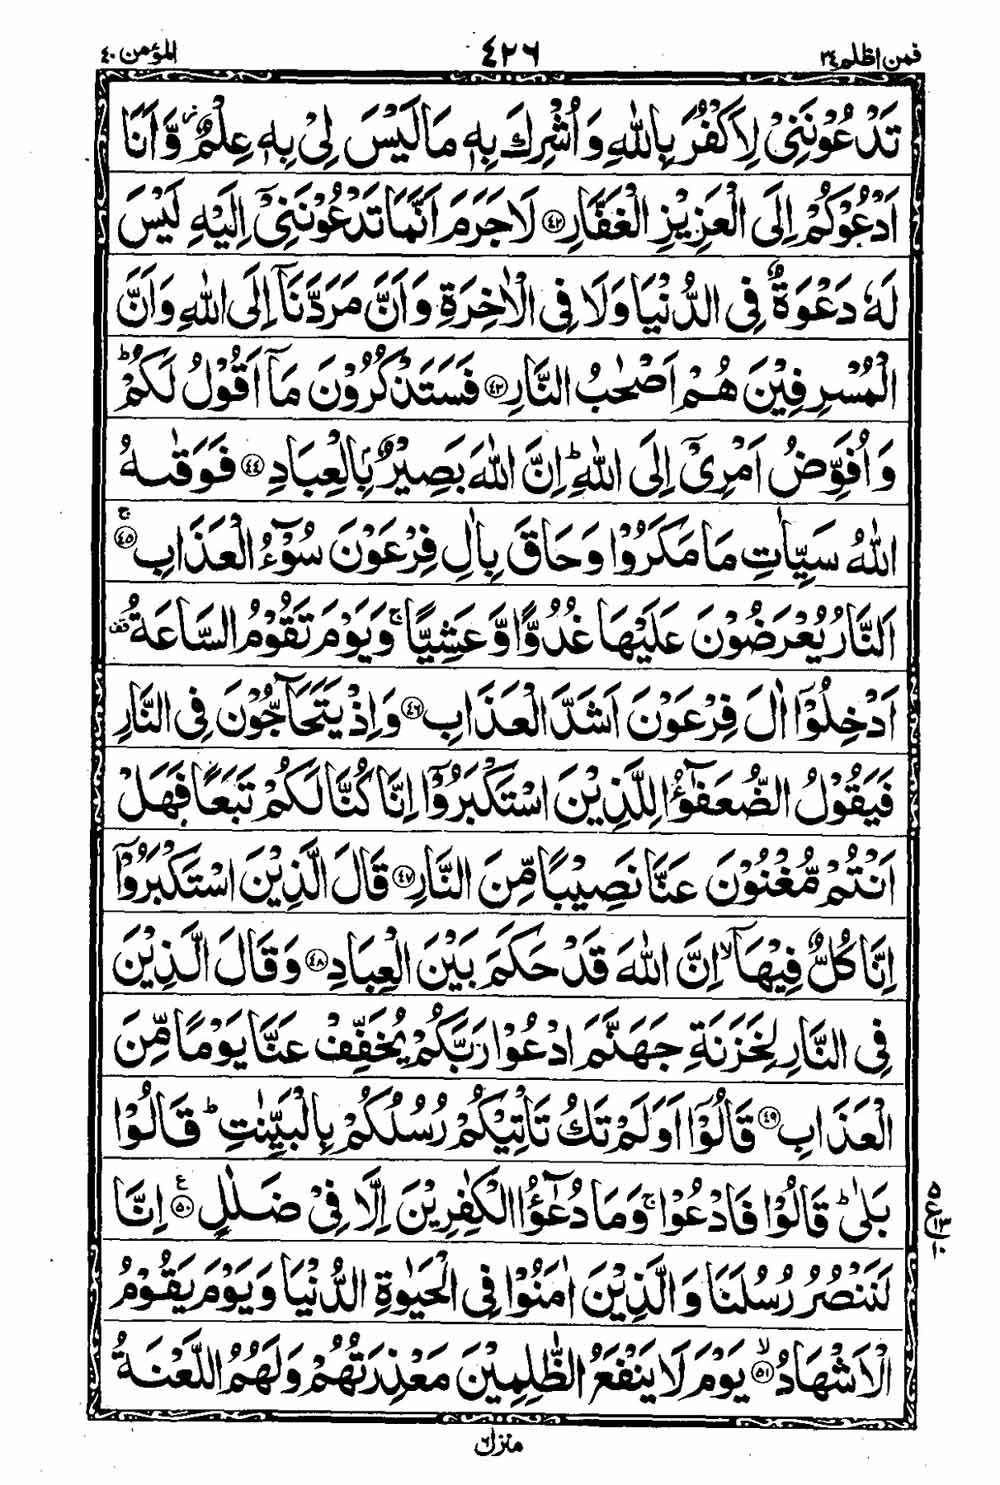 فمن اظلم ٢٤ ٤٢٦ المؤمن ٤٠
تَدْعُوْنَنِيْ لِاَكْفُرَ بِاللّٰهِ وَ اُشْرِكَ بِهٖ مَا لَيْسَ لِيْ بِهٖ عِلْمٌ ؗ وَّ اَنَا
اَدْعُوْكُمْ اِلَى الْعَزِيْزِ الْغَفَّارِ ﴿٤٢﴾ لَا جَرَمَ اَنَّمَا تَدْعُوْنَنِيْۤ اِلَيْهِ لَيْسَ
لَهٗ دَعْوَةٌ فِي الدُّنْيَا وَلَا فِي الْاٰخِرَةِ وَ اَنَّ مَرَدَّنَاۤ اِلَى اللّٰهِ وَ اَنَّ
الْمُسْرِفِيْنَ هُمْ اَصْحٰبُ النَّارِ ﴿٤٣﴾ فَسَتَذْكُرُوْنَ مَاۤ اَقُوْلُ لَكُمْ ؕ
وَ اُفَوِّضُ اَمْرِيْۤ اِلَى اللّٰهِ ؕ اِنَّ اللّٰهَ بَصِيْرٌۢ بِالْعِبَادِ ﴿٤٤﴾ فَوَقٰىهُ
اللّٰهُ سَيِّاٰتِ مَا مَكَرُوْا وَ حَاقَ بِاٰلِ فِرْعَوْنَ سُوْٓءُ الْعَذَابِ ﴿٤٥﴾ ۚ
اَلنَّارُ يُعْرَضُوْنَ عَلَيْهَا غُدُوًّا وَّ عَشِيًّا ۚ وَ يَوْمَ تَقُوْمُ السَّاعَةُ قف
اَدْخِلُوْۤا اٰلَ فِرْعَوْنَ اَشَدَّ الْعَذَابِ ﴿٤٦﴾ وَ اِذْ يَتَحَآجُّوْنَ فِي النَّارِ
فَيَقُوْلُ الضُّعَفٰٓؤُا لِلَّذِيْنَ اسْتَكْبَرُوْۤا اِنَّا كُنَّا لَكُمْ تَبَعًا فَهَلْ
اَنْتُمْ مُّغْنُوْنَ عَنَّا نَصِيْبًا مِّنَ النَّارِ ﴿٤٧﴾ قَالَ الَّذِيْنَ اسْتَكْبَرُوْۤا
اِنَّا كُلٌّ فِيْهَاۤ ۙ اِنَّ اللّٰهَ قَدْ حَكَمَ بَيْنَ الْعِبَادِ ﴿٤٨﴾ وَ قَالَ الَّذِيْنَ
فِي النَّارِ لِخَزَنَةِ جَهَنَّمَ ادْعُوْا رَبَّكُمْ يُخَفِّفْ عَنَّا يَوْمًا مِّنَ
الْعَذَابِ ﴿٤٩﴾ قَالُوْۤا اَوَ لَمْ تَكُ تَاْتِيْكُمْ رُسُلُكُمْ بِالْبَيِّنٰتِ ؕ قَالُوْا
بَلٰى ؕ قَالُوْا فَادْعُوْا ۚ وَ مَا دُعٰٓؤُا الْكٰفِرِيْنَ اِلَّا فِيْ ضَلٰلٍ ﴿٥٠﴾ ع اِنَّا
٥ ع ١٣ ١٠
لَنَنْصُرُ رُسُلَنَا وَ الَّذِيْنَ اٰمَنُوْا فِي الْحَيٰوةِ الدُّنْيَا وَ يَوْمَ يَقُوْمُ
الْاَشْهَادُ ﴿٥١﴾ ۙ يَوْمَ لَا يَنْفَعُ الظّٰلِمِيْنَ مَعْذِرَتُهُمْ وَ لَهُمُ اللَّعْنَةُ
منزل ٦